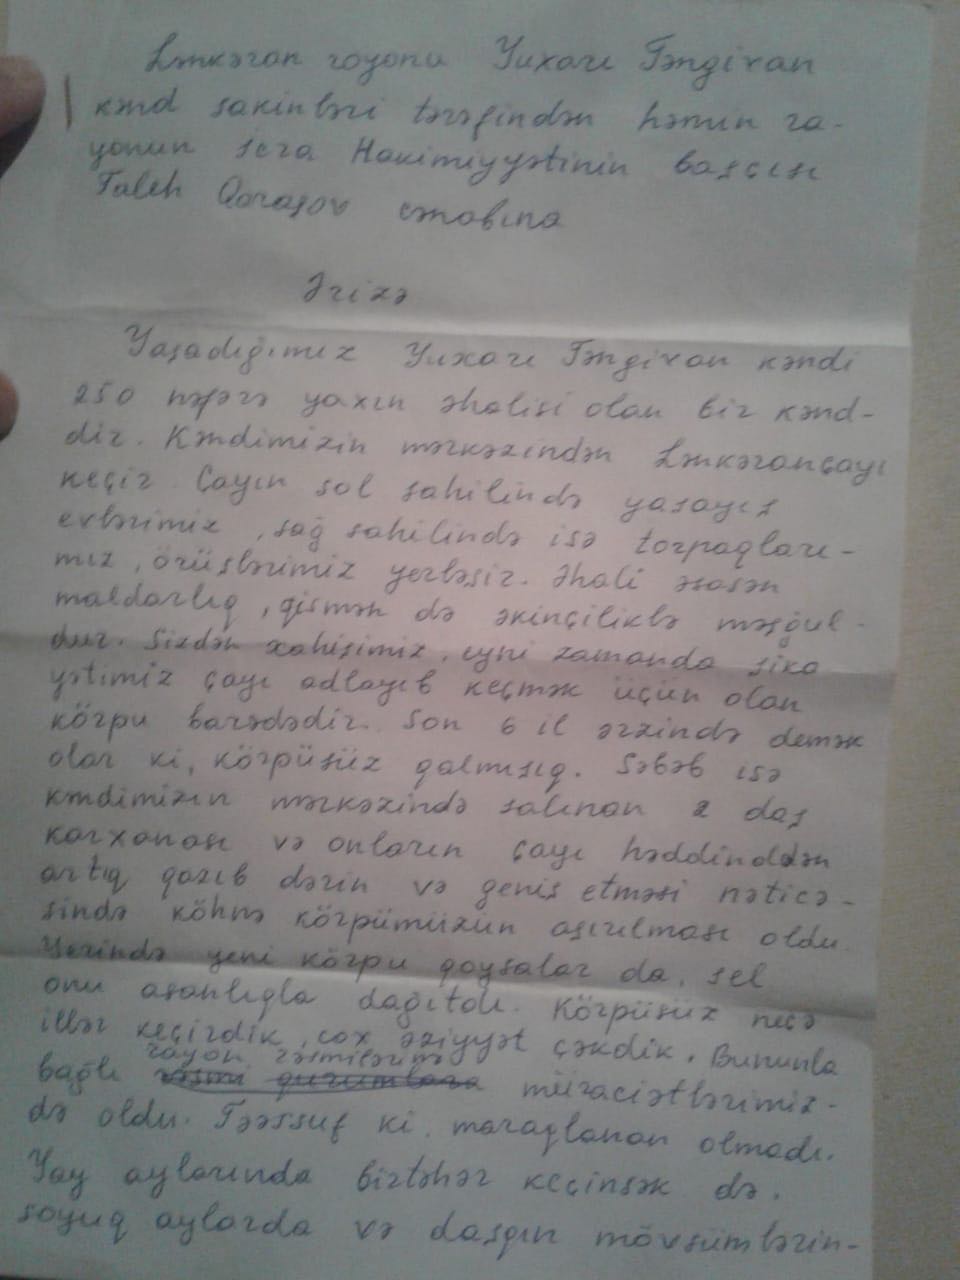 Lənkəran rayonu Yuxarı Təngivan
kənd sakinləri tərəfindən həmin ra-
yonun icra Hakimiyyətinin başçısı
Taleh Qaraşov cənabına
Ərizə
Yaşadığımız Yuxarı Təngivan kəndi
250 nəfərə yaxın əhalisi olan bir kənd-
dir. Kəndimizin mərkəzindən Lənkərançayı
keçir. Çayın sol sahilində yaşayış
evlərimiz, sağ sahilində isə torpaqları-
mız, örüşlərimiz yerləşir. Əhali əsasən
maldarlıq, qismən də əkinçiliklə məşğul-
dur. Sizdən xahişimiz, eyni zamanda şika
yətimiz çayı adlayıb keçmək üçün olan
körpu barədədir. Son 6 il ərzində demək
olar ki, körpüsüz qalmışıq. Səbəb isə
kəndimizin mərkəzində salınan 2 daş
karxanası və onların çayı həddinddən
artıq qazıb dərin və geniş etməsi nəticə-
sində köhnə körpümüzün aşırılması oldu.
Yerində yeni körpu qoysalar da, sel
onu asanlıqla dağıtdı. Körpüsüz necə
illər keçirdik, çox əziyyət çəkdik. Bununla
rayon rəsmilərinə
bağlı rəsmi qurumlara müraciətlərimiz-
də oldu. Təəssuf ki, maraqlanan olmadı.
Yay aylarında birtəhər keçinsək də,
soyuq aylarda və daşqın mövsümlərin-